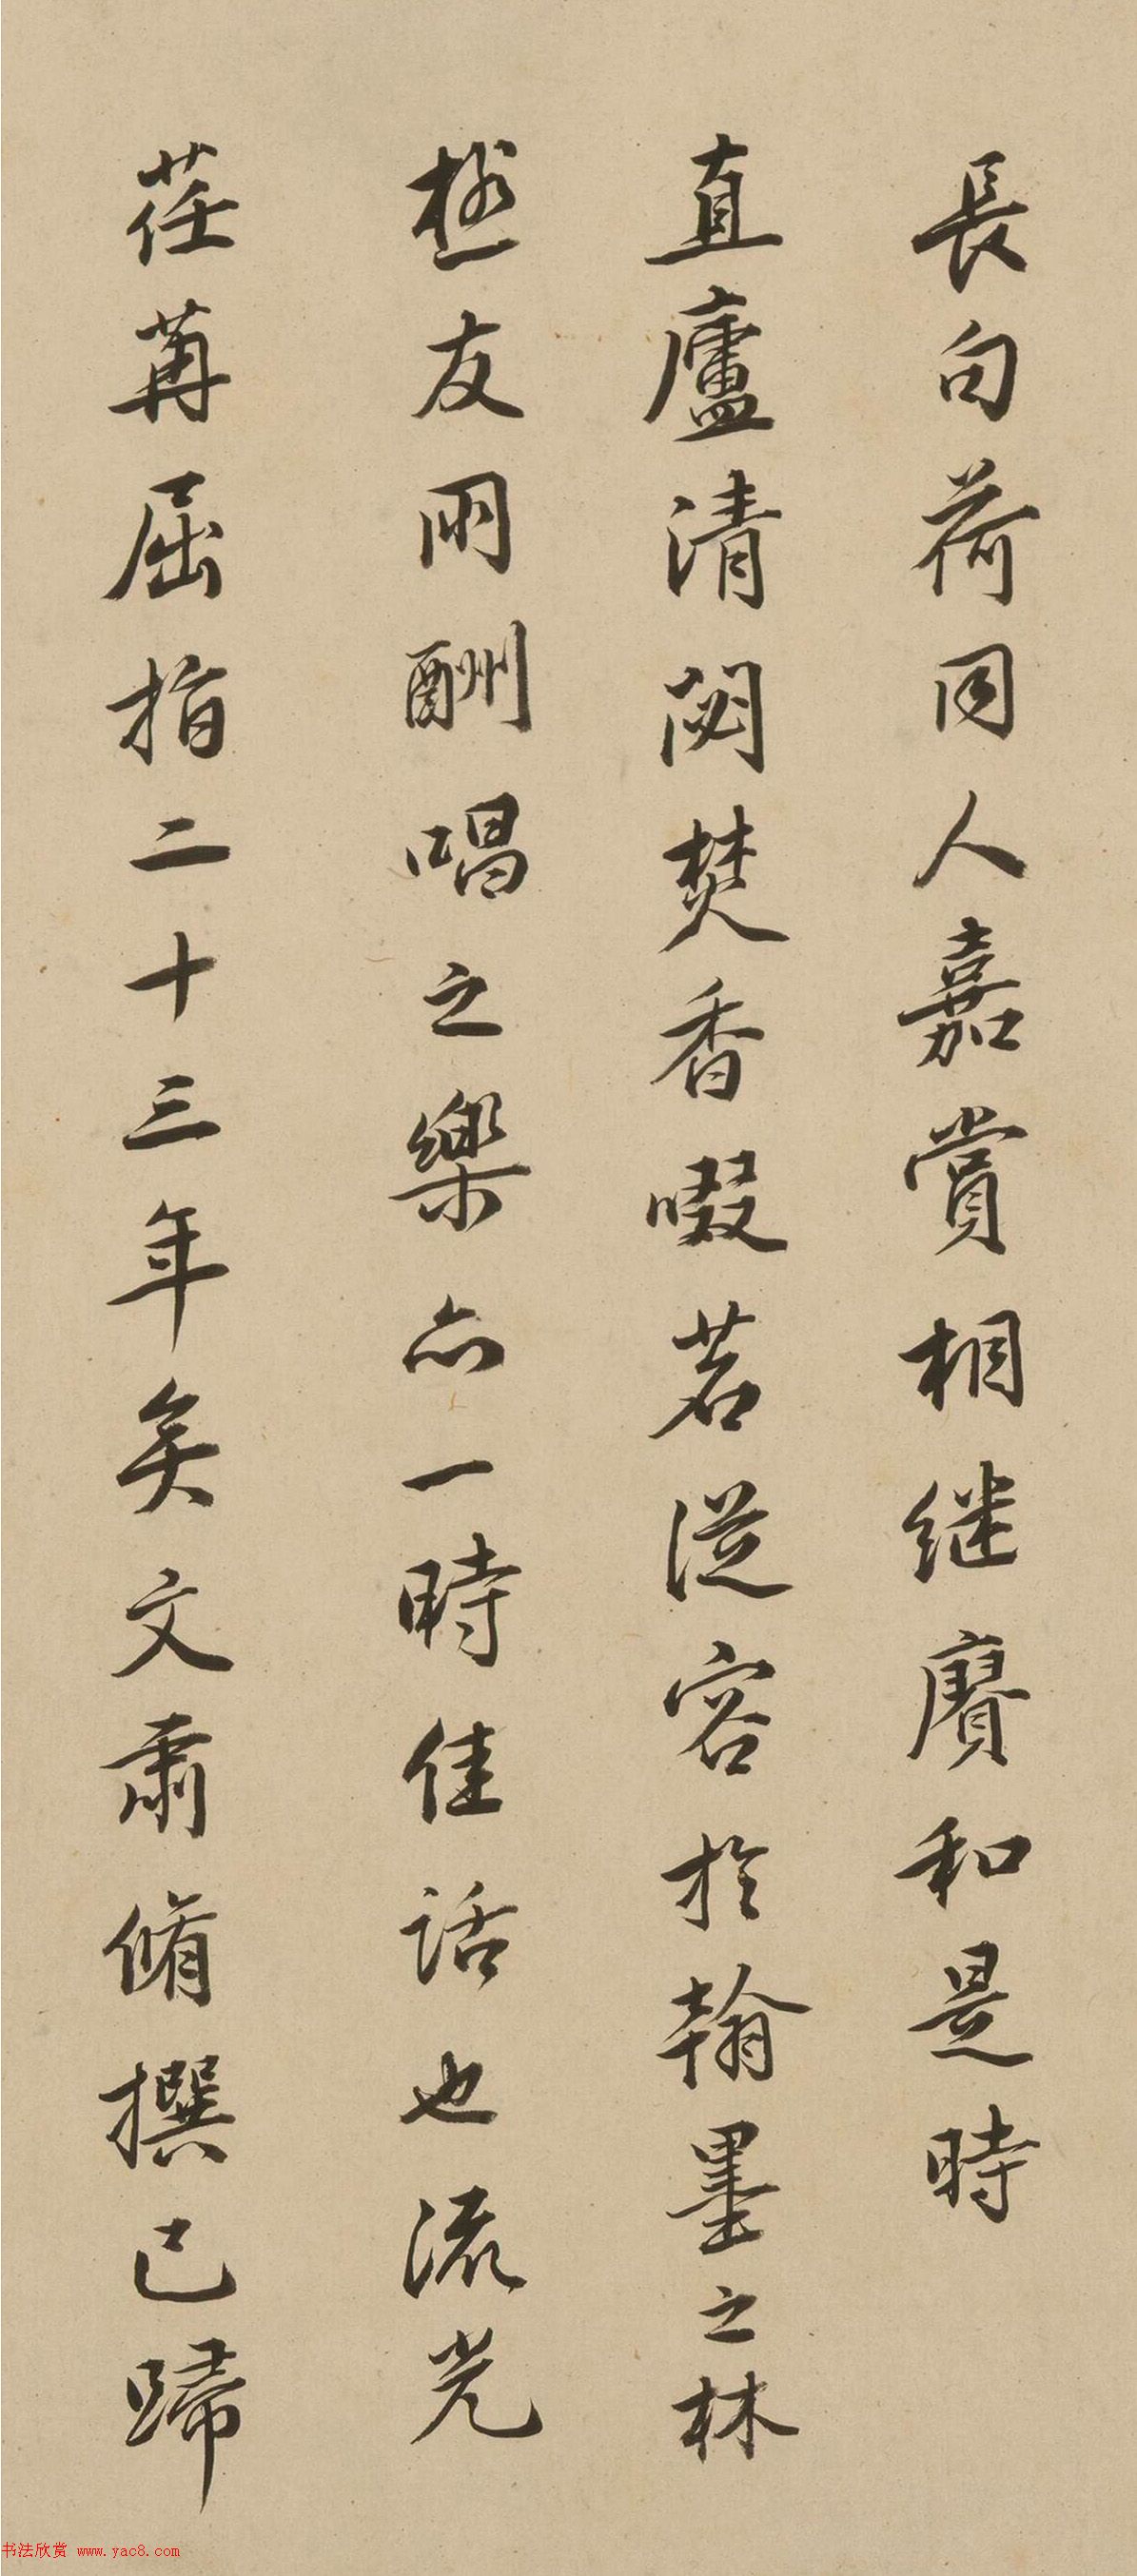 長句荷同人嘉賞相继賡和是時
直廬清閟焚香啜茗從容於翰墨之林
極友朋酬唱之樂亦一時佳話也流光
荏苒屈指二十三年矣文肅脩撰已歸
书法欣赏 www.yac8.com